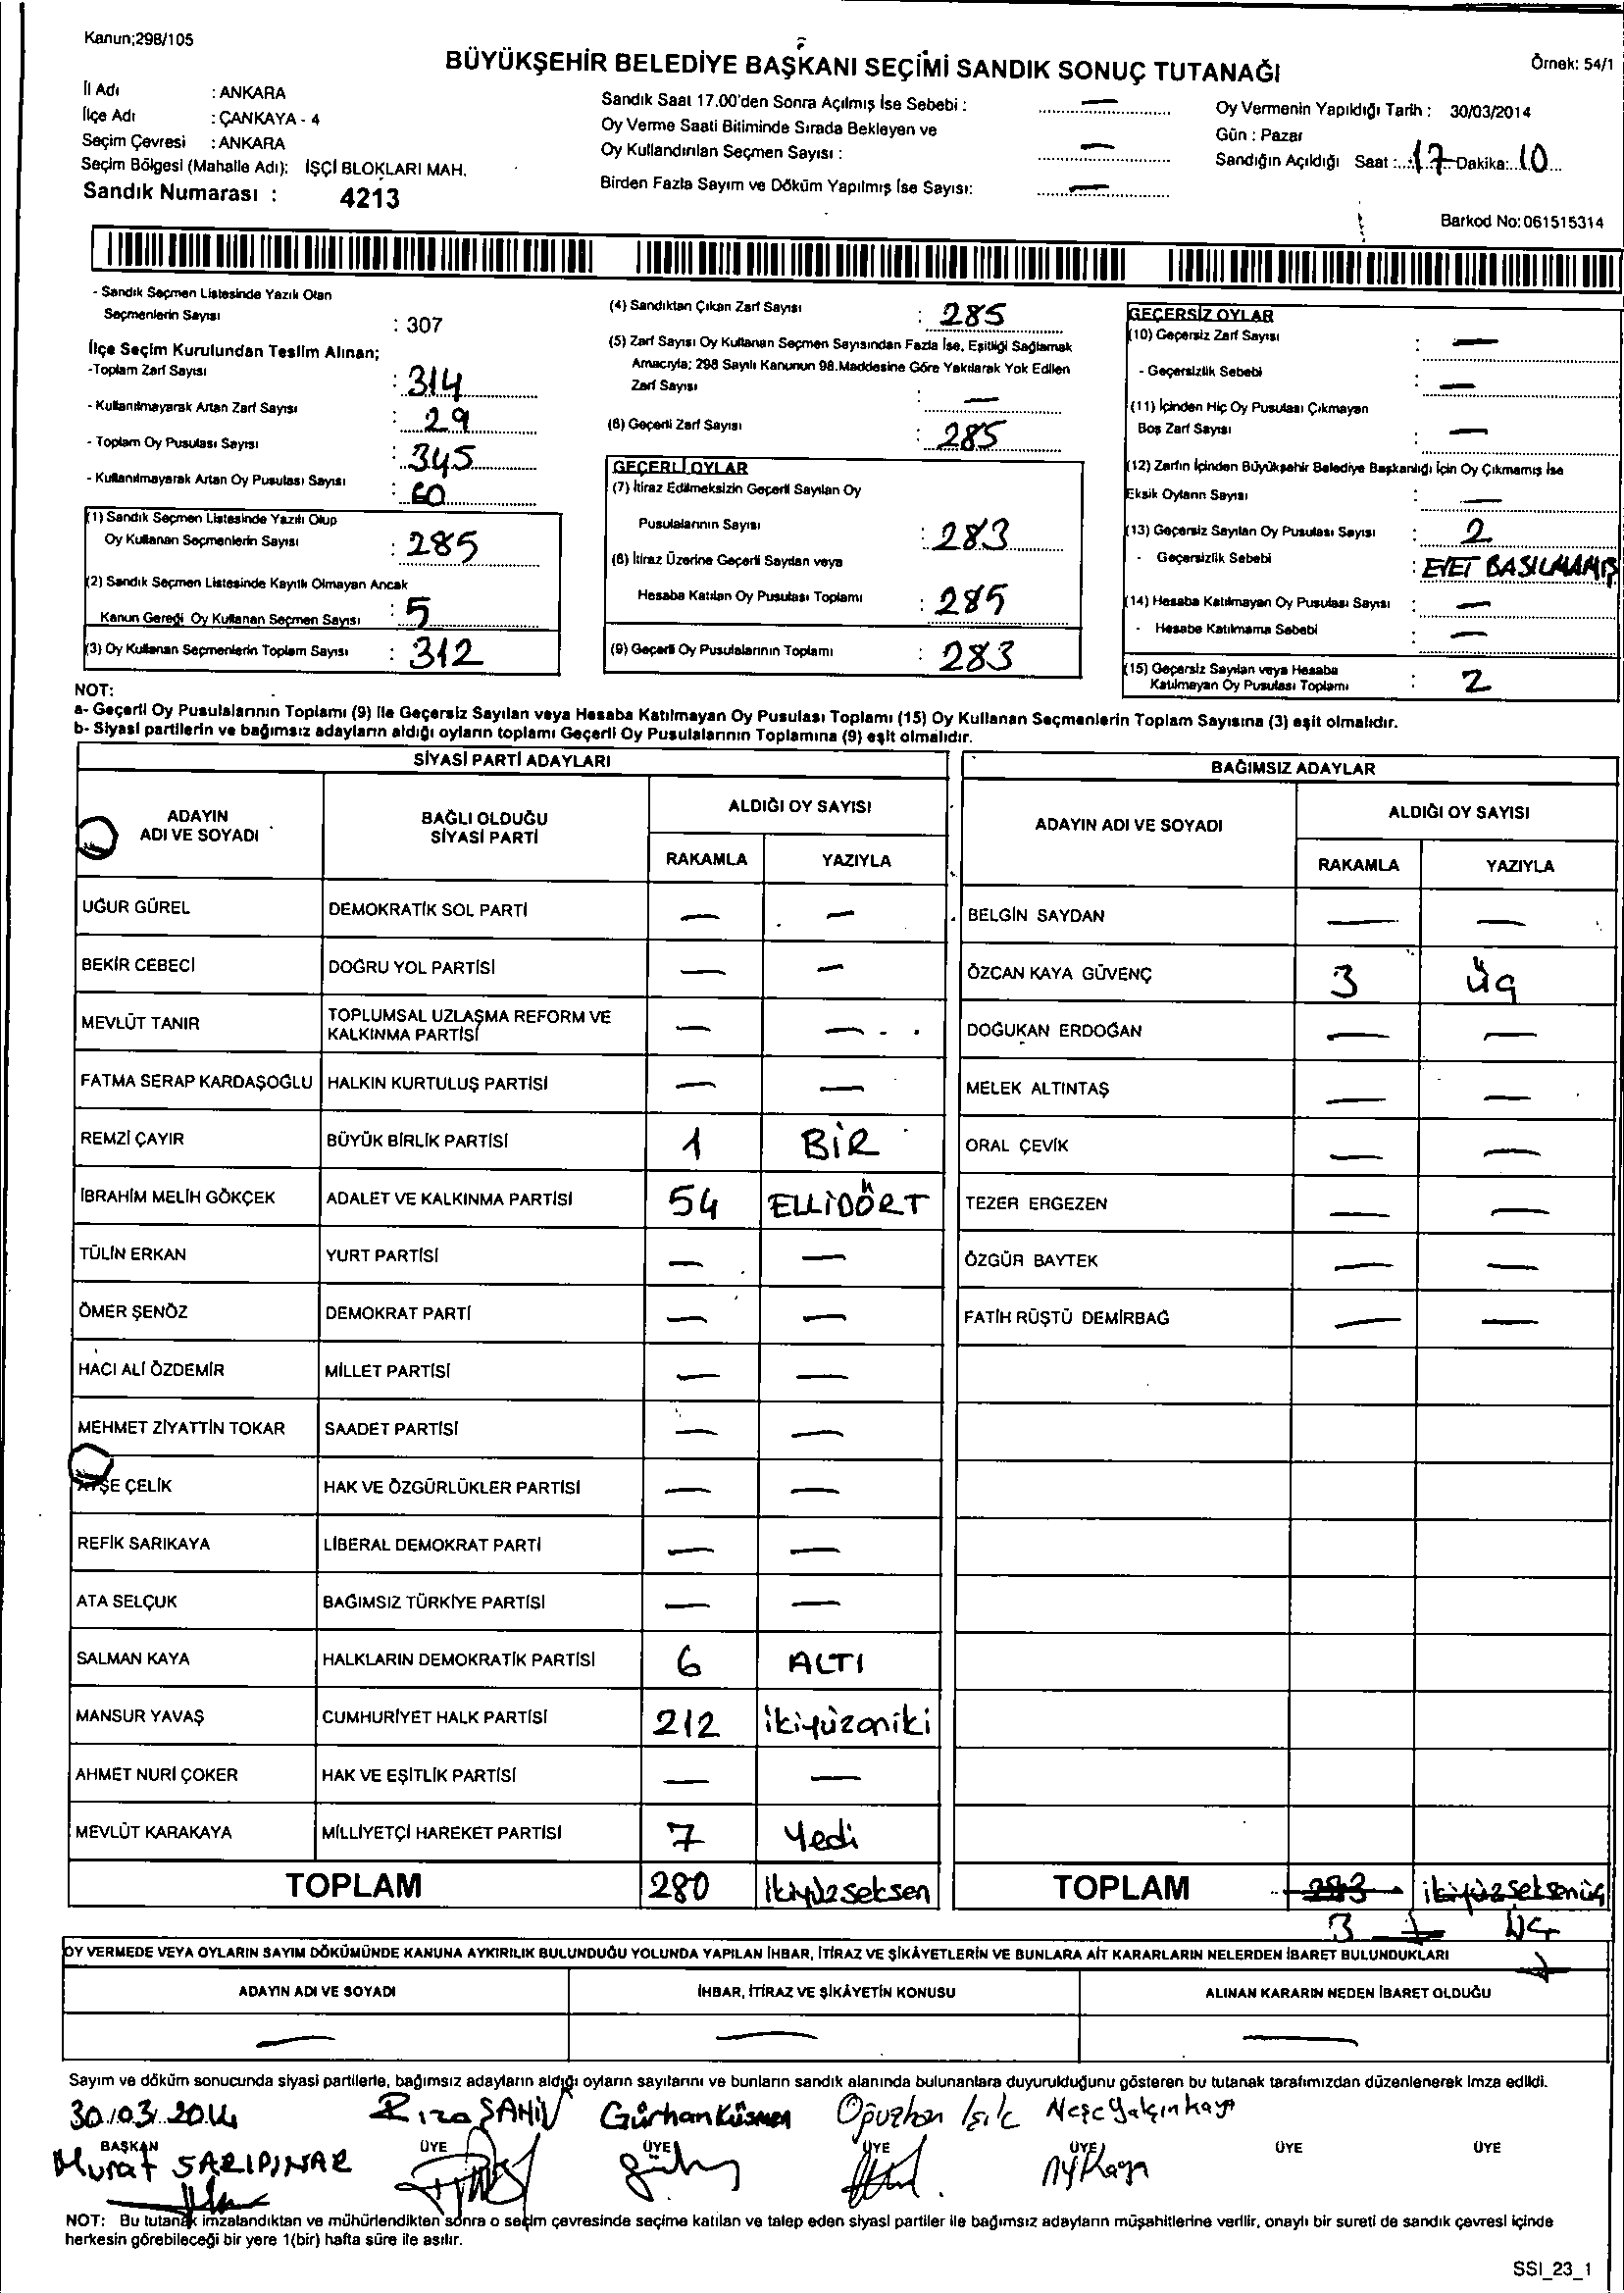 Kanun;298/105
BÜYÜKŞEHİR BELEDİYE BAŞKANI SEÇİMİ SANDIK SONUÇ TUTANAĞI
Örnek: 54/1
İl Adı : ANKARA
İlçe Adı : ÇANKAYA - 4
Seçim Çevresi : ANKARA
Seçim Bölgesi (Mahalle Adı): İŞÇİ BLOKLARI MAH.
Sandık Numarası : 4213
Sandık Saat 17.00'den Sonra Açılmış İse Sebebi : —
Oy Verme Saati Bitiminde Sırada Bekleyen ve
Oy Kullandırılan Seçmen Sayısı : —
Birden Fazla Sayım ve Döküm Yapılmış İse Sayısı: —
Oy Vermenin Yapıldığı Tarih : 30/03/2014
Gün : Pazar
Sandığın Açıldığı Saat : 17 Dakika: 10
Barkod No: 061515314
- Sandık Seçmen Listesinde Yazılı Olan
Seçmenlerin Sayısı : 307
İlçe Seçim Kurulundan Teslim Alınan;
-Toplam Zarf Sayısı : 314
- Kullanılmayarak Artan Zarf Sayısı : 29
- Toplam Oy Pusulası Sayısı : 345
- Kullanılmayarak Artan Oy Pusulası Sayısı : 60
(1) Sandık Seçmen Listesinde Yazılı Olup
Oy Kullanan Seçmenlerin Sayısı : 285
(2) Sandık Seçmen Listesinde Kayıtlı Olmayan Ancak
Kanun Gereği Oy Kullanan Seçmen Sayısı : 5
(3) Oy Kullanan Seçmenlerin Toplam Sayısı : 312
(4) Sandıktan Çıkan Zarf Sayısı : 285
(5) Zarf Sayısı Oy Kullanan Seçmen Sayısından Fazla İse, Eşitliği Sağlamak
Amacıyla; 298 Sayılı Kanunun 98.Maddesine Göre Yakılarak Yok Edilen
Zarf Sayısı : —
(6) Geçerli Zarf Sayısı : 285
GEÇERLİ OYLAR
(7) İtiraz Edilmeksizin Geçerli Sayılan Oy
Pusulalarının Sayısı : 283
(8) İtiraz Üzerine Geçerli Sayılan veya
Hesaba Katılan Oy Pusulası Toplamı : 285
(9) Geçerli Oy Pusulalarının Toplamı : 283
GEÇERSİZ OYLAR
(10) Geçersiz Zarf Sayısı : —
- Geçersizlik Sebebi : —
(11) İçinden Hiç Oy Pusulası Çıkmayan
Boş Zarf Sayısı : —
(12) Zarfın İçinden Büyükşehir Belediye Başkanlığı İçin Oy Çıkmamış İse
Eksik Oyların Sayısı : —
(13) Geçersiz Sayılan Oy Pusulası Sayısı : 2
- Geçersizlik Sebebi : EVET BASILMAMIŞ
(14) Hesaba Katılmayan Oy Pusulası Sayısı : —
- Hesaba Katılmama Sebebi : —
(15) Geçersiz Sayılan veya Hesaba
Katılmayan Oy Pusulası Toplamı : 2
NOT:
a- Geçerli Oy Pusulalarının Toplamı (9) ile Geçersiz Sayılan veya Hesaba Katılmayan Oy Pusulası Toplamı (15) Oy Kullanan Seçmenlerin Toplam Sayısına (3) eşit olmalıdır.
b- Siyasi partilerin ve bağımsız adayların aldığı oyların toplamı Geçerli Oy Pusulalarının Toplamına (9) eşit olmalıdır.
SİYASİ PARTİ ADAYLARI
ADAYIN ADI VE SOYADI | BAĞLI OLDUĞU SİYASİ PARTİ | ALDIĞI OY SAYISI
RAKAMLA | YAZIYLA
UĞUR GÜREL DEMOKRATİK SOL PARTİ — —
BEKİR CEBECİ DOĞRU YOL PARTİSİ — —
MEVLÜT TANIR TOPLUMSAL UZLAŞMA REFORM VE KALKINMA PARTİSİ — —
FATMA SERAP KARDAŞOĞLU HALKIN KURTULUŞ PARTİSİ — —
REMZİ ÇAYIR BÜYÜK BİRLİK PARTİSİ 1 BİR
İBRAHİM MELİH GÖKÇEK ADALET VE KALKINMA PARTİSİ 54 ELLİDÖRT
TÜLİN ERKAN YURT PARTİSİ — —
ÖMER ŞENÖZ DEMOKRAT PARTİ — —
HACI ALİ ÖZDEMİR MİLLET PARTİSİ — —
MEHMET ZİYATTİN TOKAR SAADET PARTİSİ — —
AYŞE ÇELİK HAK VE ÖZGÜRLÜKLER PARTİSİ — —
REFİK SARIKAYA LİBERAL DEMOKRAT PARTİ — —
ATA SELÇUK BAĞIMSIZ TÜRKİYE PARTİSİ — —
SALMAN KAYA HALKLARIN DEMOKRATİK PARTİSİ 6 ALTI
MANSUR YAVAŞ CUMHURİYET HALK PARTİSİ 212 ikiyüzoniki
AHMET NURİ ÇOKER HAK VE EŞİTLİK PARTİSİ — —
MEVLÜT KARAKAYA MİLLİYETÇİ HAREKET PARTİSİ 7 Yedi
TOPLAM 280 ikiyüzseksen
BAĞIMSIZ ADAYLAR
ADAYIN ADI VE SOYADI | ALDIĞI OY SAYISI
RAKAMLA | YAZIYLA
BELGİN SAYDAN — —
ÖZCAN KAYA GÜVENÇ 3 üç
DOĞUKAN ERDOĞAN — —
MELEK ALTINTAŞ — —
ORAL ÇEVİK — —
TEZER ERGEZEN — —
ÖZGÜR BAYTEK — —
FATİH RÜŞTÜ DEMİRBAĞ — —
TOPLAM 283 ikiyüzseksenüç
3 üç
OY VERMEDE VEYA OYLARIN SAYIM DÖKÜMÜNDE KANUNA AYKIRILIK BULUNDUĞU YOLUNDA YAPILAN İHBAR, İTİRAZ VE ŞİKÂYETLERİN VE BUNLARA AİT KARARLARIN NELERDEN İBARET BULUNDUKLARI
ADAYIN ADI VE SOYADI | İHBAR, İTİRAZ VE ŞİKÂYETİN KONUSU | ALINAN KARARIN NEDEN İBARET OLDUĞU
— — —
Sayım ve döküm sonucunda siyasi partilerle, bağımsız adayların aldığı oyların sayılarını ve bunların sandık alanında bulunanlara duyurulduğunu gösteren bu tutanak tarafımızdan düzenlenerek imza edildi.
30.03.2014 Rıza ŞAHİN Gürhan Küsmen Oğuzhan Işık Neşe Yalçınkaya
BAŞKAN ÜYE ÜYE ÜYE ÜYE ÜYE ÜYE
Murat SARIPINAR
NOT: Bu tutanak imzalandıktan ve mühürlendikten sonra o seçim çevresinde seçime katılan ve talep eden siyasi partiler ile bağımsız adayların müşahitlerine verilir, onaylı bir sureti de sandık çevresi içinde
herkesin görebileceği bir yere 1(bir) hafta süre ile asılır.
SSI_23_1